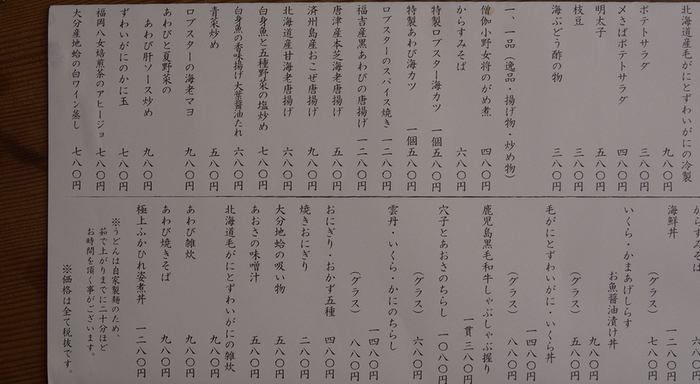 北海道産毛がにとずわいがにの冷製 九八〇円
ポテトサラダ 三八〇円
〆さばポテトサラダ 四八〇円
明太子 五八〇円
枝豆
海ぶどう酢の物 三八〇円
一、一品（逸品・揚げ物・炒め物）
僧伽小野女将のがめ煮 四八〇円
からすみそば 六八〇円
特製ロブスター海カツ 一個五八〇円
特製あわび海カツ 一個五八〇円
ロブスターのスパイス焼き 一二八〇円
福吉産黒あわびの唐揚げ 一二八〇円
唐津産本芝海老唐揚げ 五八〇円
済州島産おこぜ唐揚げ 九八〇円
北海道産甘海老唐揚げ 六八〇円
白身魚と五種野菜の塩炒め 七八〇円
白身魚の香味揚げ大葉醤油たれ 六八〇円
青菜炒め 五八〇円
ロブスターの海老マヨ 九八〇円
あわびと夏野菜の
あわび肝ソース炒め 九八〇円
ずわいがにのかに玉 七八〇円
福岡八女焙煎茶のアヒージョ 七八〇円
大分産地蛤の白ワイン蒸し 七八〇円
からすみそ
海鮮丼 一二八〇円
（グラス） 七八〇円
いくら・かまあげしらす
お魚醤油漬け丼 九八〇円
（グラス） 五八〇円
毛がにとずわいがに・いくら丼 一四八〇円
（グラス） 八八〇円
鹿児島黒毛和牛しゃぶしゃぶ握り 一貫三八〇円
穴子とあおさのちらし 一〇八〇円
（グラス） 六八〇円
雲丹・いくら・かにのちらし 一四八〇円
（グラス） 八八〇円
おにぎり・おかず五種 四八〇円
焼きおにぎり 二八〇円
大分地蛤の吸い物 五八〇円
あおさの味噌汁 五八〇円
北海道毛がにとずわいがにの雑炊 九八〇円
あわび雑炊 九八〇円
あわび焼きそば 九八〇円
極上ふかひれ姿煮丼 一二八〇円
※うどんは自家製麺のため、
茹で上がりまでに二十分ほど
お時間を頂く事がございます。
※価格は全て税抜です。